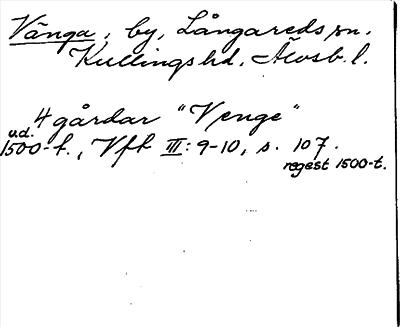 Vånga, by, Långareds sn,
Kullings hd, Älvsb. l.
4 gårdar "Venge"
u.d.
1500-t., Vft III: 9-10, s. 107.
regest 1500-t.